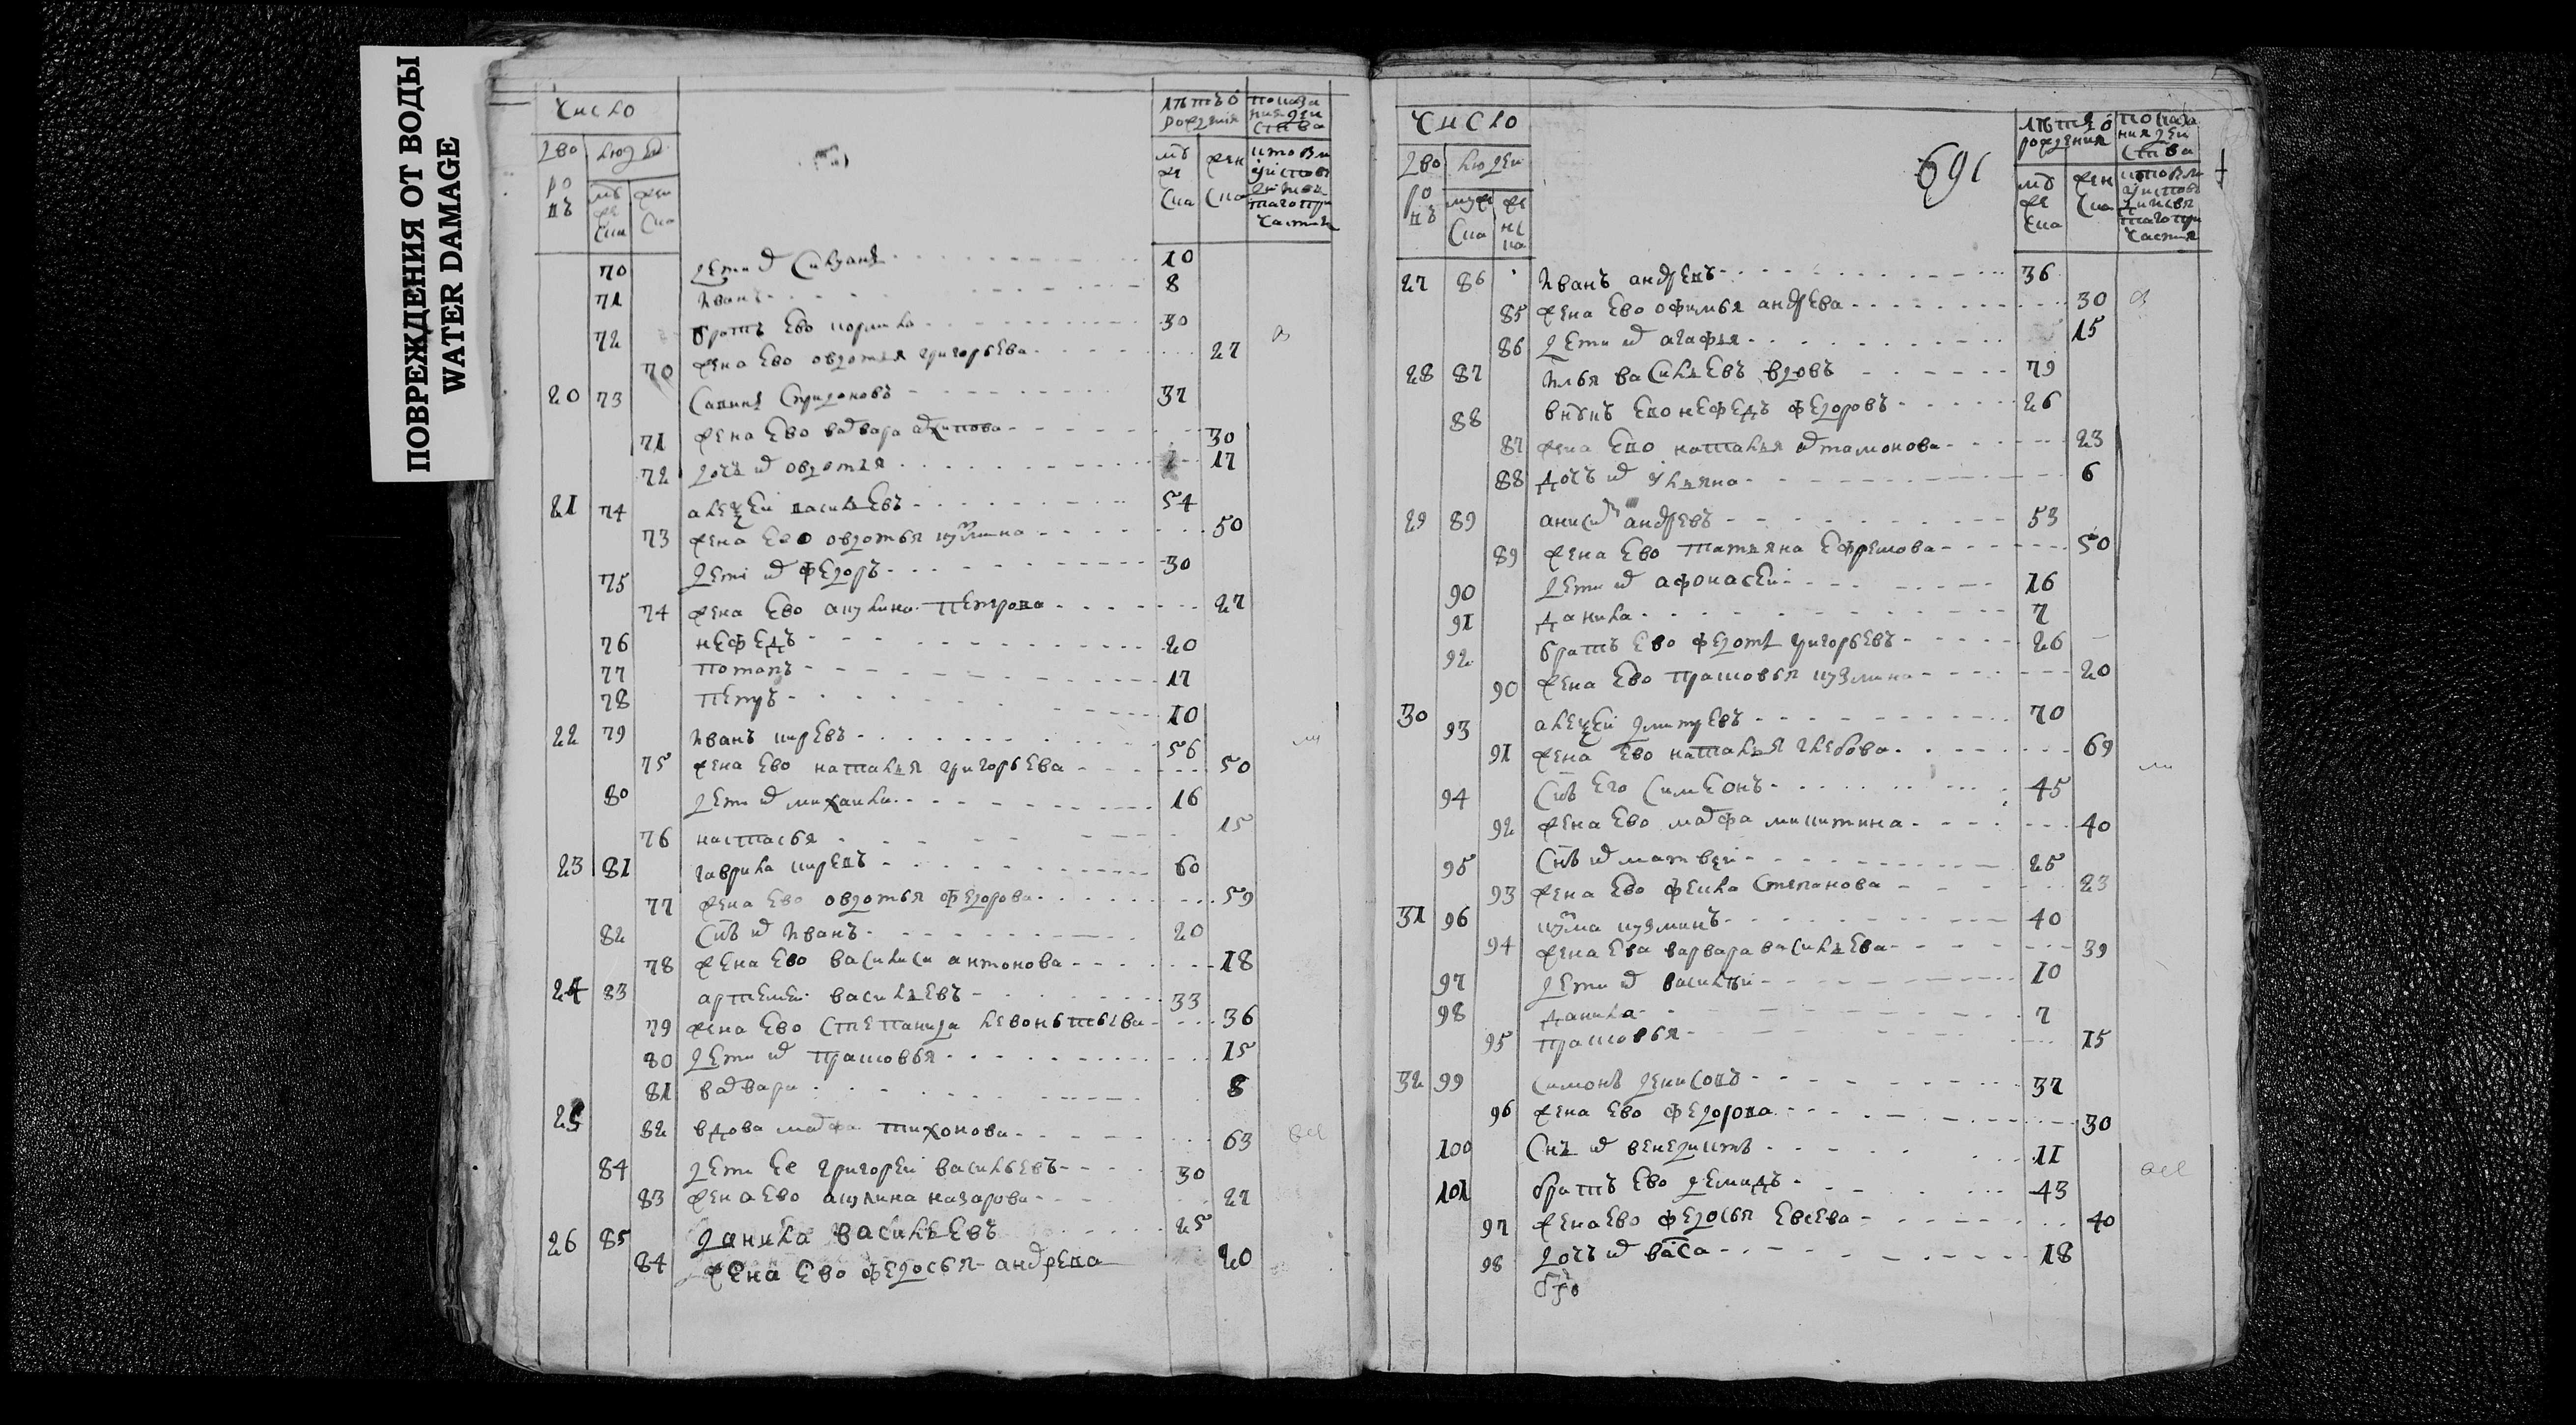 ПОВРЕЖДЕНИЯ ОТ ВОДЫ
WATER DAMAGE
число
дво
ро
въ
людей
муже
ска
жен
ска
лѣтъ ѿ
рождения
муже
ска
жен
ска
показа
ния дей
ства
кто были
у исповѣди
70 дети ѿ Силуанъ 10
71 иванъ 8
72 братъ ево корнила 30
70 жена ево овдотья григорьева 27
20 73 Спиридоновъ 37
71 жена ево варвара архипова 30
72 дочь ѿ овдотья 17
21 74 алеѯей васильевъ 54
73 жена ево овдотья кузмина 50
75 дети ѿ федоръ 30
74 жена ево акулина петрова 27
76 нефедъ 20
77 потапъ 17
78 петръ 10
22 79 иванъ киревъ 56
75 жена ево наталья григорьева 50
80 дети ѿ михаила 16
76 настасья 15
23 81 гаврила киревъ 60
77 жена ево овдотья федорова 59
82 Снъ ѿ иванъ 20
78 жена ево василиса антонова 18
24 83 артемей васильевъ 33
79 жена ево степанида левонтьева 36
80 дети ѿ прасковья 15
81 варвара 8
25 82 вдова марфа тихонова 63
84 дети ее григорей васильевъ 30
83 жена ево акулина назарова 27
26 85 данила васильевъ 25
84 жена ево федосья андрева 20
691
число
дво
ро
въ
людей
муже
ска
же
нс
ка
лѣтъ ѿ
рождения
муже
ска
жен
ска
показа
ния дей
ства
кто были
у исповѣди
27 86 иванъ андревъ 36
85 жена ево офимья андрева 30
86 дети ѿ агафья 15
28 87 илья васильевъ вдовъ 79
88 внукъ ево нефедъ федоровъ 26
87 жена ево наталья артамонова 23
88 дочь ѿ ульяна 6
29 89 анисимъ андревъ 53
89 жена ево татьяна ефремова 50
90 дети ѿ афонасей 16
91 данила 7
92 братъ ево федотъ григорьевъ 26
90 жена ево прасковья кузмина 20
30 93 алеѯей дмитревъ 70
91 жена ево наталья глебова 69
94 Снъ его симеонъ 45
92 жена ево марфа микитина 40
95 Снъ ѿ матвей 25
93 жена ево фекла степанова 23
31 96 кузма кузминъ 40
94 жена ева варвара васильева 39
97 дети ѿ василѣй 10
98 данила 7
95 прасковья 15
32 99 симонъ денисовъ 37
96 жена ево федорова 30
100 Снъ ѿ венедиктъ 11
101 братъ ево демидъ 43
97 жена ево федосья евсева 40
98 дочь ѿ васа 18